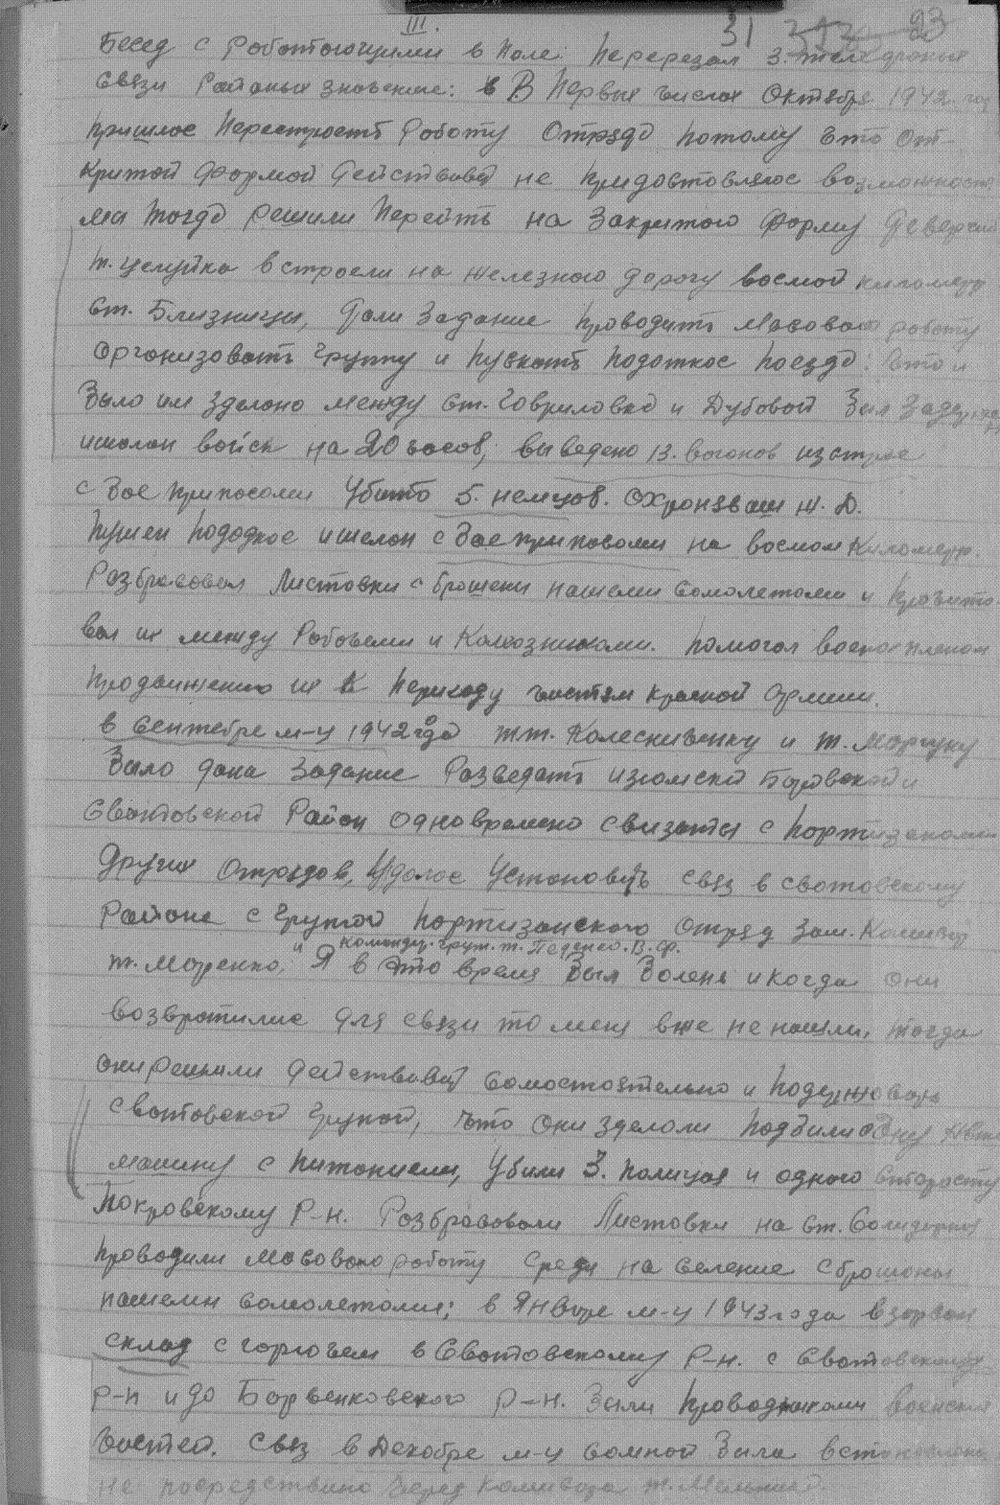 III.
31 23
Бесед с роботающими в поле: перерезал 3. телефоные
связи районых значение: в В первых числах октября 1942. год
пришлос перестроеть роботу отряда потому что от-
критой формой действовать не предоставлялос возможност
ми тогда решили перейти на закритого форму
т. устроели на железного дорогу восмой километр
ст. Близнецы, дали задание проводить масовою роботу
организовать групу и пускать подоткос поезда: что и
было им зделоно между ст. Гавриловка и Дубовой был задержан
ишолон войск на 20 часов, выведено 13. вогонов изстроя
с боеприпасоми убито 5. немцов. охронявши ж. д.
пущен пододкос ишелон с боеприпасоми на восмом километр.
Розбрасовал листовки сброшени нашеми самолетоми и прочито
вал их между рабочеми и колхозникоми. помогал военопленом
продвижению их к переходу частям красной армии.
в сентебре м-ц 1942 года т.т. Колесниченку и т. Моргуну
было дана задание разведать изюмский Боровской и
Сватовской район одновремено связатся с портизаноми
других отрядов, удалос установить связ в сватовскому
районе с групой портизанского отряд зам. Командир
и командир. груп. т. Педенко. В. Ф.
т. Моренко, Я в это время был болен и когда они
возвротилис для связи то меня вже не нашли, тогда
они решили действовать самостоятельно и подержовать
сватовской групой, что они зделоли подбили одну авто
машину с питонием, убили 3. полицая и одного старосту
Покровскому р-н. Розбрасовали листовки на ст. Солидарная
проводили масового роботу среди население сброшоны
нашеми самолетоми; в январе м-ц 1943 года взорвал
склад с горючем в Сватовскому р-н. с Сватовскому
р-н и до Борвенковского р-н. были проводникоми воинских
частей. связ в декабре м-ц самной была встановлена
не посредствено через командира т. Мельник